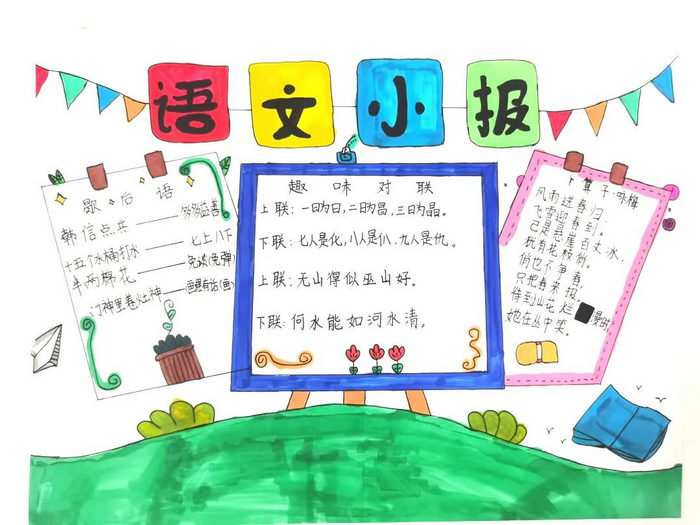 语文小报
歇后语
韩信点兵——多多益善
十五个水桶打水——七上八下
半两棉花——免谈(免弹)
门神里卷灶神——画里有话(画)
趣味对联
上联:一日为日,二日为昌,三日为晶。
下联:七人是化,八人是仈.九人是仇。
上联:无山得似巫山好。
下联:何水能如河水清。
卜算子·咏梅
风雨送春归,
飞雪迎春到。
已是悬崖百丈冰,
犹有花枝俏。
俏也不争春,
只把春来报。
待到山花烂漫时
她在丛中笑。